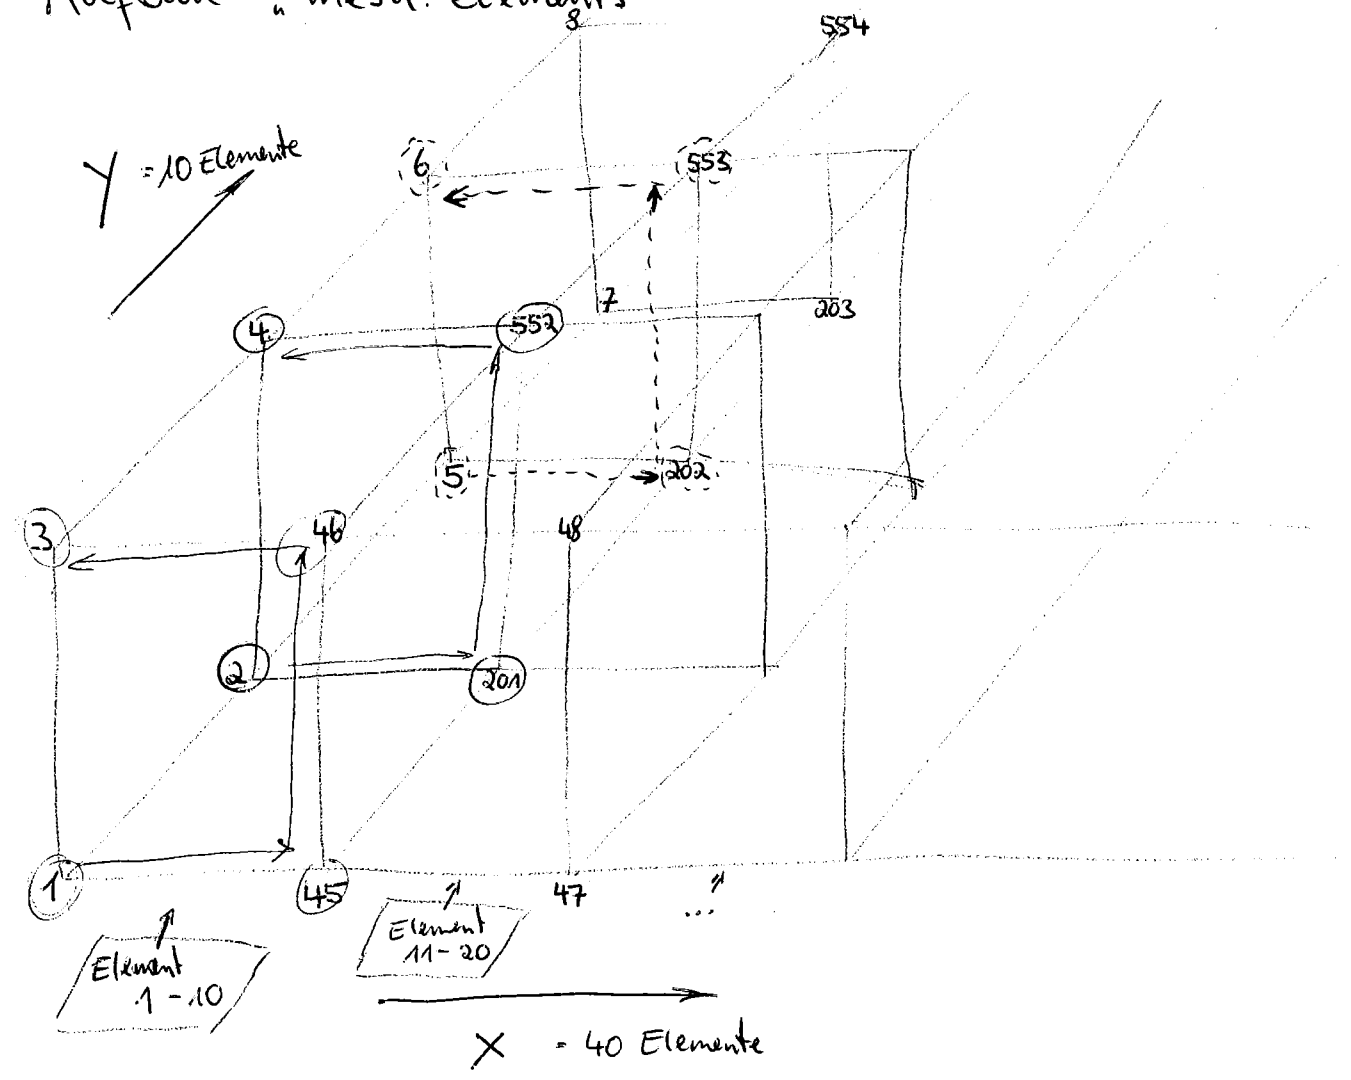 "mesh. Elements"
8
554
6
553
Y = 10 Elemente
7
203
4
552
5
202
3
46
48
2
201
1
45
47
...
Element
1-10
Element
11-20
X = 40 Elemente